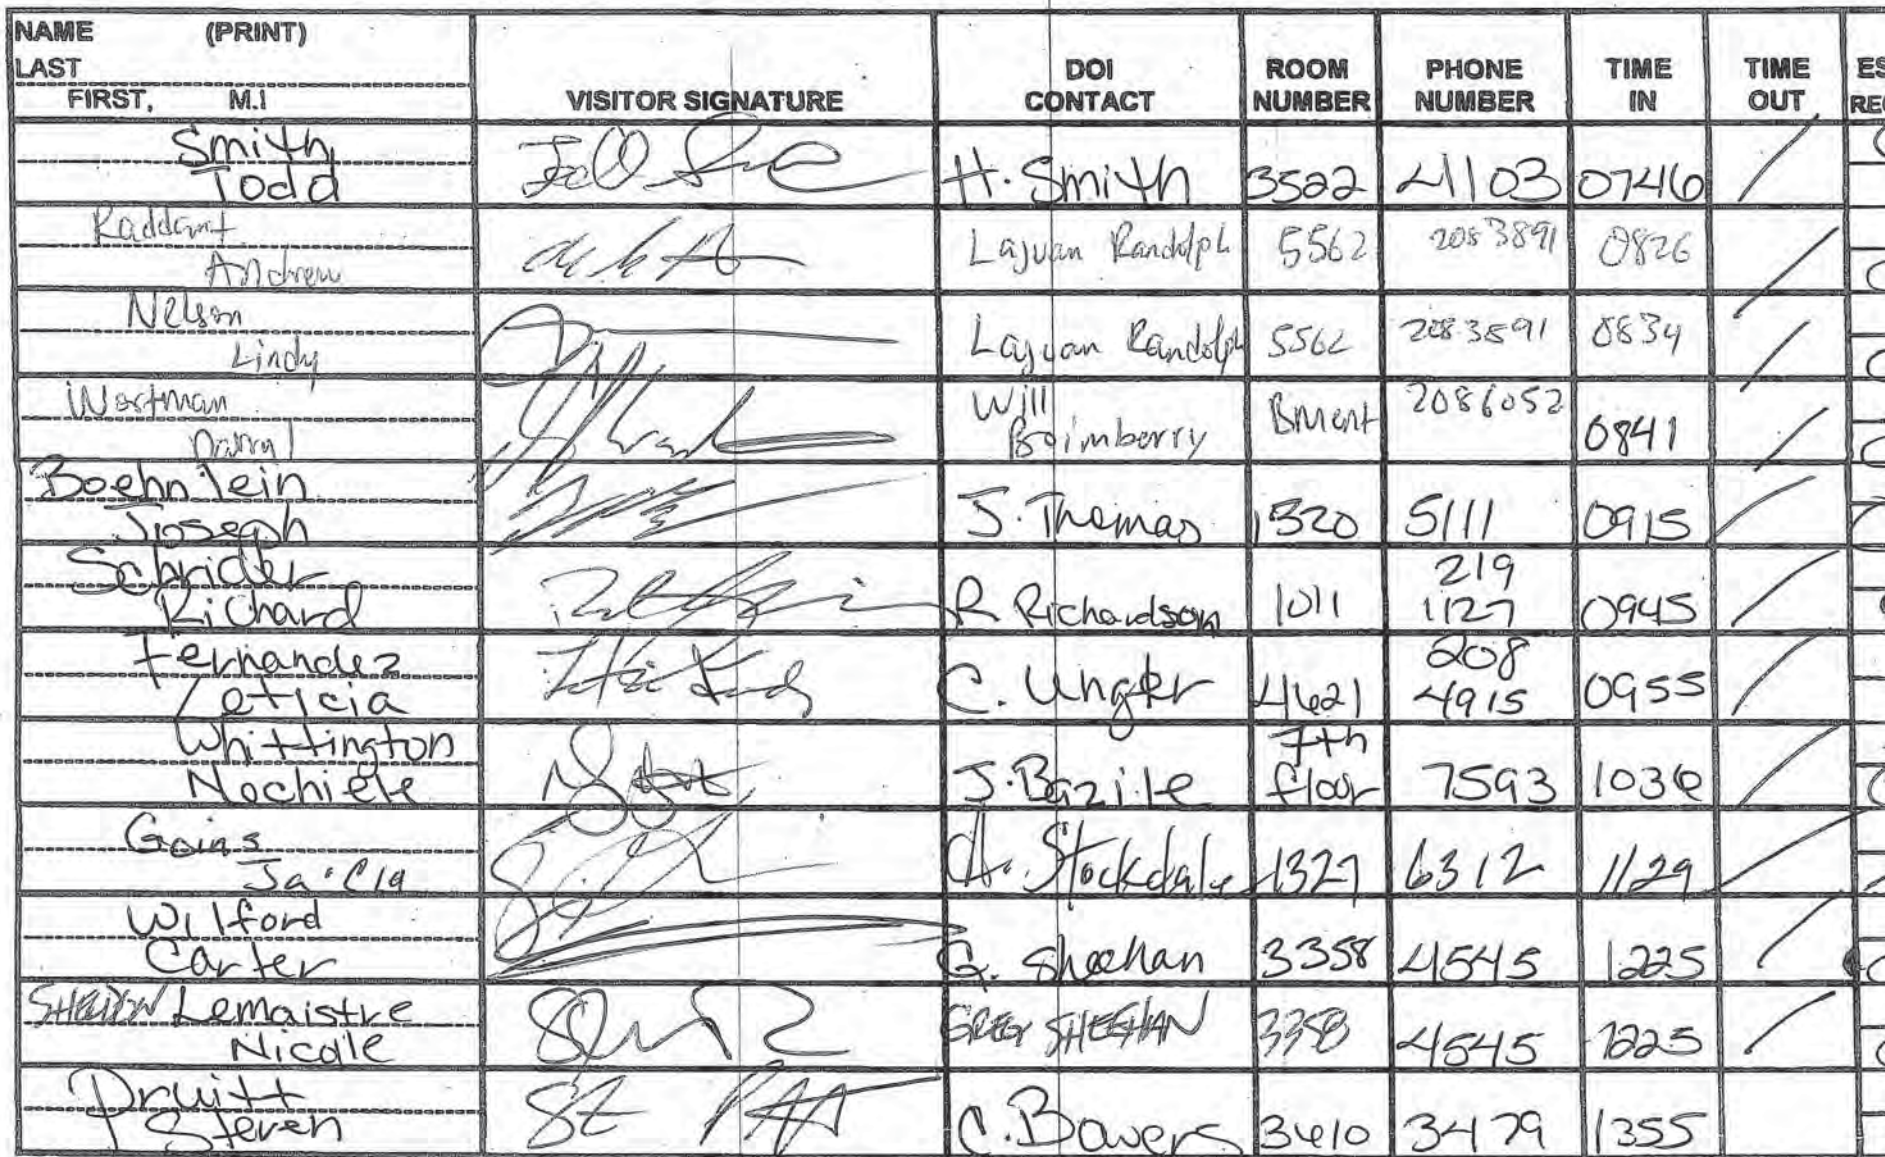 NAME (PRINT)
LAST
FIRST, M.I
VISITOR SIGNATURE
DOI CONTACT
ROOM NUMBER
PHONE NUMBER
TIME IN
TIME OUT
Smith
Todd
H. Smith 3522 41103 0746
Andrew
Lajuan Randolph 5562 2083891 0826
Nelson
Lindy
Lajuan Randolph 5562 208-3891 0834
Wortman
Darryl
Will
Brimberry
Bment 2086052 0841
Boehnlein
Joseph
J. Thomas 1320 5111 0915
Schrider
Richard
R Richardson 1011 219
1127 0945
Fernandez
Leticia
C. Unger 4621 208
4915 0955
Whittington
Nechiele
J. Bazile 7th
floor 7593 1036
Goins
Stockdale 1327 6312 1129
Wilford
Carter
G. Sheehan 3358 4545 1225
SHELDON Lemaistre
Nicole
GREG SHEEHAN 3358 4545 1225
Pruitt
Steven
C. Bowers 3610 3479 1355